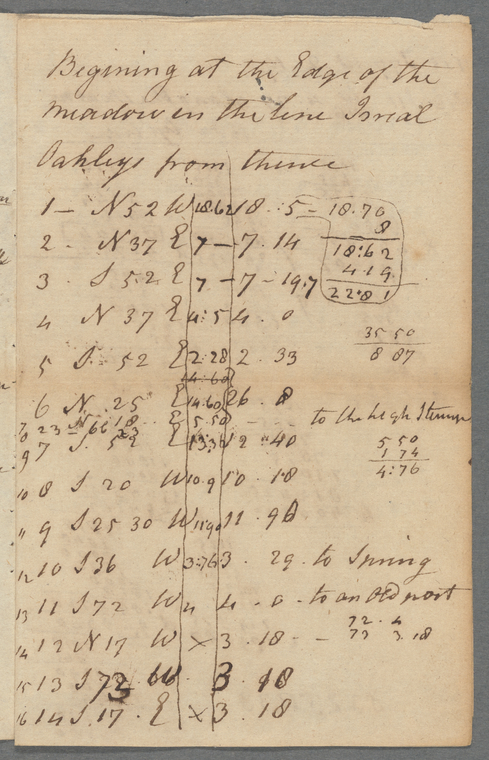 Begining at the Edge of the
meadow in the line Isreal
Oakleys from thence
1 - N 52 W 18.62 18 . 5 - 18.70
8
2 - N 37 E 7 - 7 . 14 18:62
3 - S 52 E 7 - 7 - 19.7 4.19
22.81
4 N 37 E 4:5 4 . 0
35 50
5 S - 52 E 2:28 2 . 33 8 87
14.60
6 N . 25 E 14.60 26 . 8
to the high
7 S . 52 E 13:36 12 . 40 5 50
1 74
4:76
10 8 S 20 W 10.9 10 . 18
11 9 S 25 30 W 11.90 11 . 96
12 10 S 36 W 3:76 3 . 29 - to Spring
13 11 S 72 W 4 4 . 0 - to an Old post
72 . 4
14 12 N 17 W x 3 . 18 - 73 3.18
15 13 S 73 W 3 . 18
16 14 S . 17 . E x 3 . 18